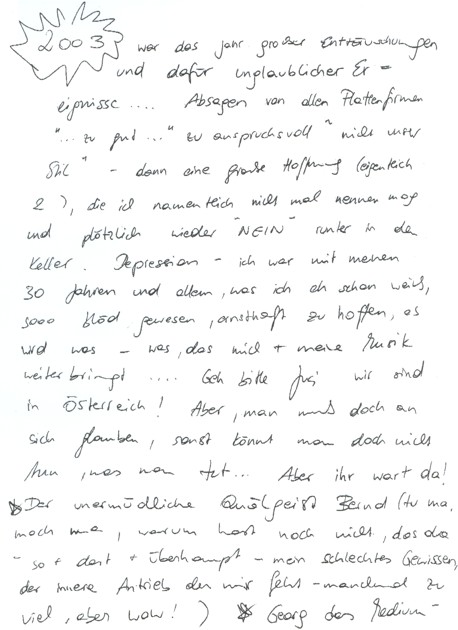 2003 war das Jahr großer Enttäuschungen
und dafür unglaublicher Er=
eignisse .... Absagen von allen Plattenfirmen
"... zu gut ..." zu anspruchsvoll " nicht unser
Stil " - dann eine große Hoffnung (eigentlich
2), die ich namentlich nicht mal nennen mag
und plötzlich wieder "NEIN" runter in den
Keller. Depression - ich war mit meinen
30 Jahren und allem, was ich eh schon weiß,
sooo blöd gewesen, ernsthaft zu hoffen, es
wird was - was, das mich + meine Musik
weiterbringt .... Geh bitte wir sind
in Österreich! Aber, man muß doch an
sich glauben, sonst könnt man doch nicht
tun, was man tut... Aber ihr wart da!
Der unermüdliche Quälgeist Bernd (tu ma,
mach ma, warum hast noch nicht, das da
- so + dort + überhaupt - mein schlechtes Gewissen,
der innere Antrieb der mir fehlt - manchmal zu
viel, aber wow!) Georg das Medium -